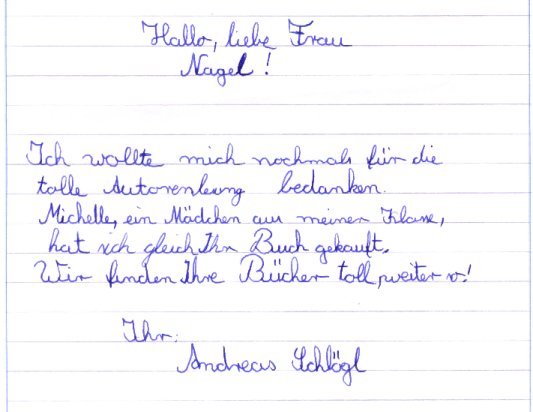 Hallo, liebe Frau
Nagel!
Ich wollte mich nochmals für die
tolle Autorenlesung bedanken.
Michelle, ein Mädchen aus meiner Klasse,
hat sich gleich Ihr Buch gekauft.
Wir finden Ihre Bücher toll, weiter so!
Ihr:
Andreas Schlögl